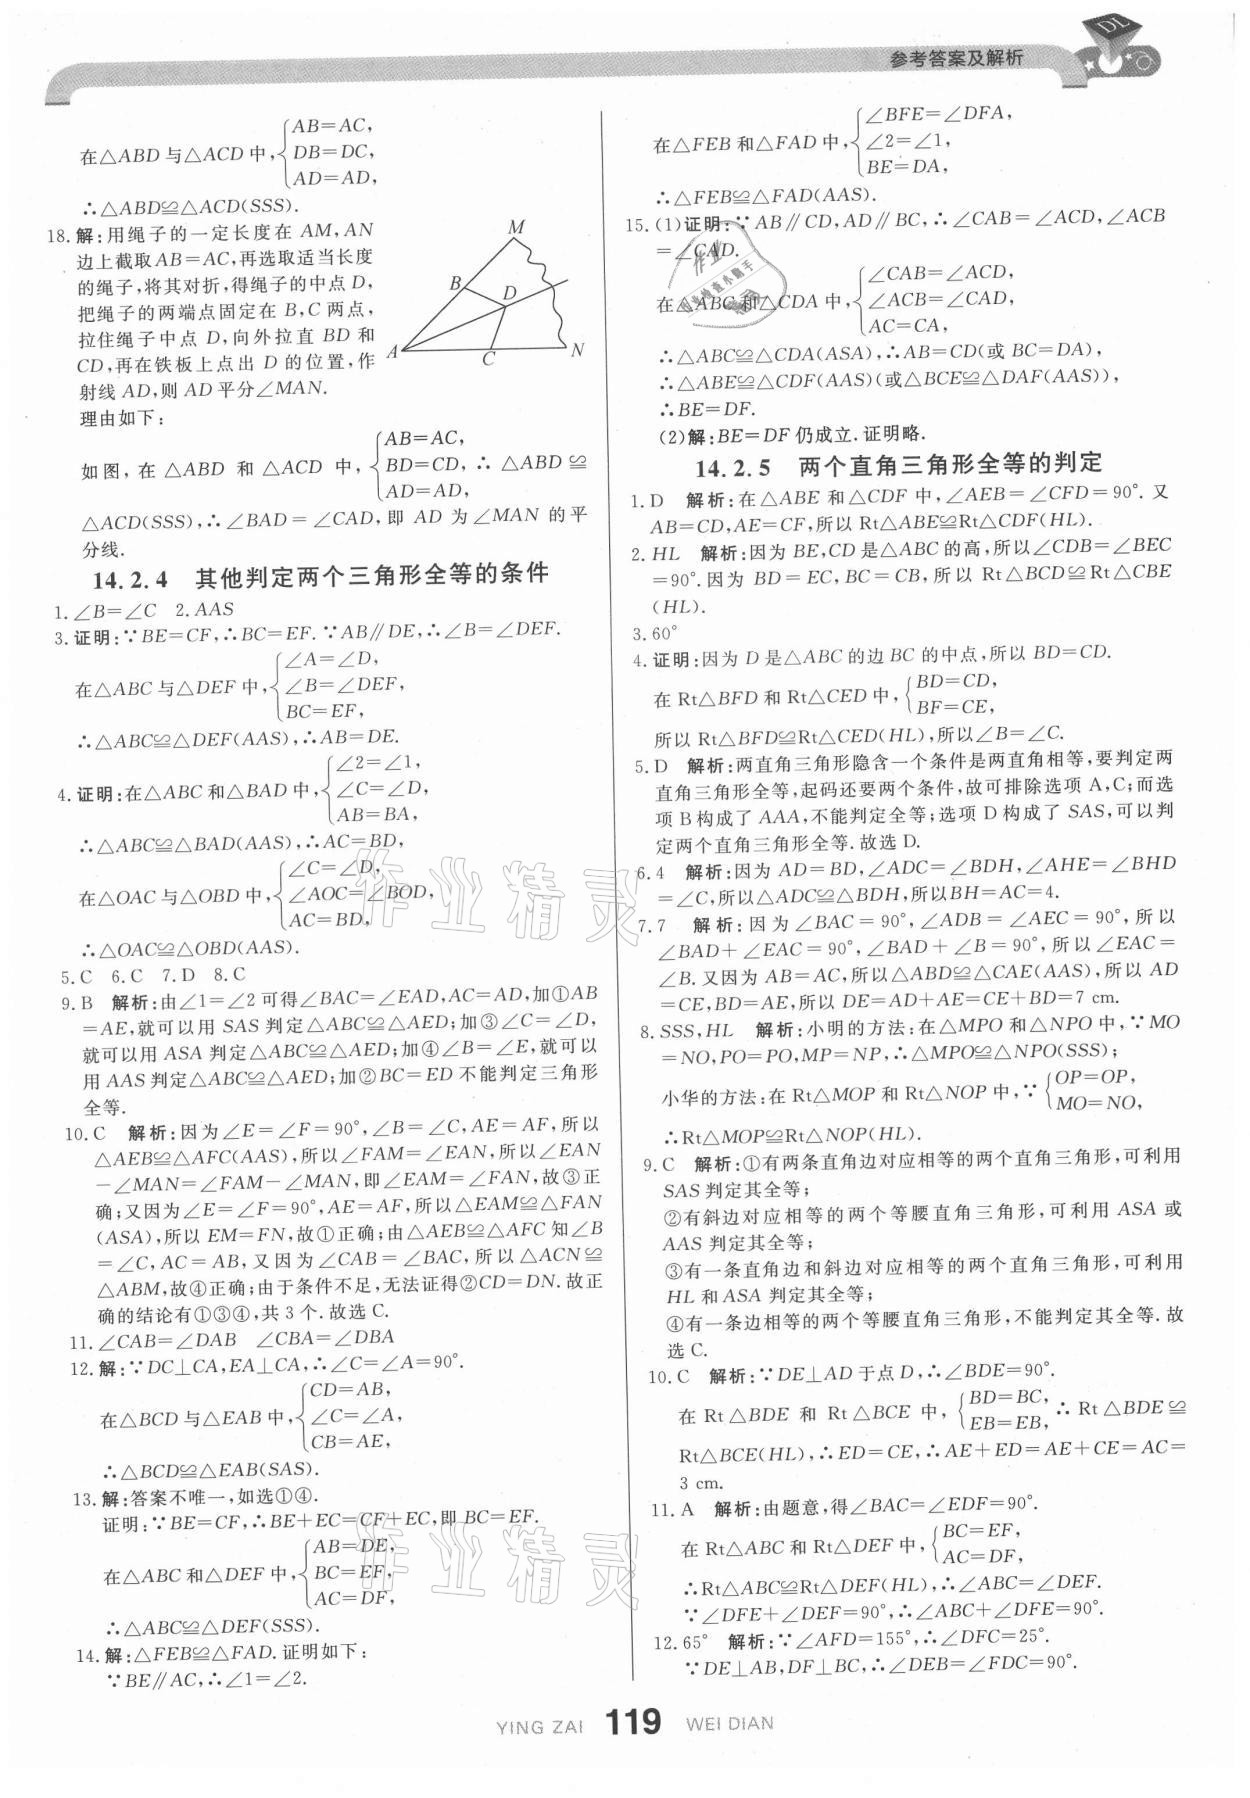 DL
参考答案及解析
在△ABD与△ACD中,{AB=AC,
DB=DC,
AD=AD,
∴△ABD≌△ACD(SSS).
18.解:用绳子的一定长度在 AM,AN
边上截取AB=AC,再选取适当长度
的绳子,将其对折,得绳子的中点 D,
把绳子的两端点固定在 B,C 两点,
拉住绳子中点 D,向外拉直 BD 和
CD,再在铁板上点出 D 的位置,作
射线 AD,则 AD 平分∠MAN.
M
B
D
A
C
N
理由如下:
如图,在 △ABD 和 △ACD 中,{AB=AC,
BD=CD,∴ △ABD ≌
AD=AD,
△ACD(SSS),∴∠BAD=∠CAD,即 AD 为∠MAN 的平
分线.
14.2.4 其他判定两个三角形全等的条件
1.∠B=∠C 2.AAS
3.证明:∵BE=CF,∴BC=EF.∵AB∥DE,∴∠B=∠DEF.
在△ABC与△DEF中,{∠A=∠D,
∠B=∠DEF,
BC=EF,
∴△ABC≌△DEF(AAS),∴AB=DE.
4.证明:在△ABC和△BAD中,{∠2=∠1,
∠C=∠D,
AB=BA,
∴△ABC≌△BAD(AAS),∴AC=BD,
在△OAC与△OBD中,{∠C=∠D,
∠AOC=∠BOD,
AC=BD,
∴△OAC≌△OBD(AAS).
5.C 6.C 7.D 8.C
9.B 解析:由∠1=∠2可得∠BAC=∠EAD,AC=AD,加①AB
=AE,就可以用 SAS 判定△ABC≌△AED;加③∠C=∠D,
就可以用 ASA 判定△ABC≌△AED;加④∠B=∠E,就可以
用 AAS 判定△ABC≌△AED;加②BC=ED 不能判定三角形
全等.
10.C 解析:因为∠E=∠F=90°,∠B=∠C,AE=AF,所以
△AEB≌△AFC(AAS),所以∠FAM=∠EAN,所以∠EAN
-∠MAN=∠FAM-∠MAN,即∠EAM=∠FAN,故③正
确;又因为∠E=∠F=90°,AE=AF,所以△EAM≌△FAN
(ASA),所以EM=FN,故①正确;由△AEB≌△AFC知∠B
=∠C,AC=AB,又因为∠CAB=∠BAC,所以△ACN≌
△ABM,故④正确;由于条件不足,无法证得②CD=DN.故正
确的结论有①③④,共3个.故选C.
11.∠CAB=∠DAB ∠CBA=∠DBA
12.解:∵DC⊥CA,EA⊥CA,∴∠C=∠A=90°.
在△BCD与△EAB中,{CD=AB,
∠C=∠A,
CB=AE,
∴△BCD≌△EAB(SAS).
13.解:答案不唯一,如选①④.
证明:∵BE=CF,∴BE+EC=CF+EC,即BC=EF.
在△ABC和△DEF中,{AB=DE,
BC=EF,
AC=DF,
∴△ABC≌△DEF(SSS).
14.解:△FEB≌△FAD.证明如下:
∵BE∥AC,∴∠1=∠2.
在△FEB和△FAD中,{∠BFE=∠DFA,
∠2=∠1,
BE=DA,
∴△FEB≌△FAD(AAS).
15.(1)证明:∵AB∥CD,AD∥BC,∴∠CAB=∠ACD,∠ACB
=∠CAD.
在△ABC和△CDA中,{∠CAB=∠ACD,
∠ACB=∠CAD,
AC=CA,
∴△ABC≌△CDA(ASA),∴AB=CD(或BC=DA),
∴△ABE≌△CDF(AAS)(或△BCE≌△DAF(AAS)),
∴BE=DF.
(2)解:BE=DF仍成立.证明略.
14.2.5 两个直角三角形全等的判定
1.D 解析:在△ABE和△CDF中,∠AEB=∠CFD=90°.又
AB=CD,AE=CF,所以 Rt△ABE≌Rt△CDF(HL).
2.HL 解析:因为BE,CD是△ABC的高,所以∠CDB=∠BEC
=90°.因为 BD=EC,BC=CB,所以 Rt△BCD≌Rt△CBE
(HL).
3.60°
4.证明:因为 D 是△ABC 的边 BC 的中点,所以 BD=CD.
在 Rt△BFD 和 Rt△CED 中,{BD=CD,
BF=CE,
所以 Rt△BFD≌Rt△CED(HL),所以∠B=∠C.
5.D 解析:两直角三角形隐含一个条件是两直角相等,要判定两
直角三角形全等,起码还要两个条件,故可排除选项 A,C;而选
项B构成了 AAA,不能判定全等;选项 D 构成了 SAS,可以判
定两个直角三角形全等.故选 D.
6.4 解析:因为 AD=BD,∠ADC=∠BDH,∠AHE=∠BHD
=∠C,所以△ADC≌△BDH,所以BH=AC=4.
7.7 解析:因为∠BAC=90°,∠ADB=∠AEC=90°,所以
∠BAD+∠EAC=90°,∠BAD+∠B=90°,所以∠EAC=
∠B.又因为AB=AC,所以△ABD≌△CAE(AAS),所以 AD
=CE,BD=AE,所以 DE=AD+AE=CE+BD=7 cm.
8.SSS,HL 解析:小明的方法:在△MPO和△NPO中,∵MO
=NO,PO=PO,MP=NP,∴△MPO≌△NPO(SSS);
小华的方法:在 Rt△MOP 和 Rt△NOP 中,∵{OP=OP,
MO=NO,
∴Rt△MOP≌Rt△NOP(HL).
9.C 解析:①有两条直角边对应相等的两个直角三角形,可利用
SAS 判定其全等;
②有斜边对应相等的两个等腰直角三角形,可利用 ASA 或
AAS 判定其全等;
③有一条直角边和斜边对应相等的两个直角三角形,可利用
HL 和 ASA 判定其全等;
④有一条边相等的两个等腰直角三角形,不能判定其全等.故
选 C.
10.C 解析:∵DE⊥AD于点D,∴∠BDE=90°.
在 Rt△BDE 和 Rt△BCE 中,{BD=BC,
EB=EB,∴ Rt△BDE≌
Rt△BCE(HL),∴ED=CE,∴AE+ED=AE+CE=AC=
3 cm.
11.A 解析:由题意,得∠BAC=∠EDF=90°.
在 Rt△ABC和 Rt△DEF中,{BC=EF,
AC=DF,
∴Rt△ABC≌Rt△DEF(HL),∴∠ABC=∠DEF.
∵∠DFE+∠DEF=90°,∴∠ABC+∠DFE=90°.
12.65° 解析:∵∠AFD=155°,∴∠DFC=25°.
∵DE⊥AB,DF⊥BC,∴∠DEB=∠FDC=90°.
作业精灵
作业精灵
YING ZAI 119 WEI DIAN